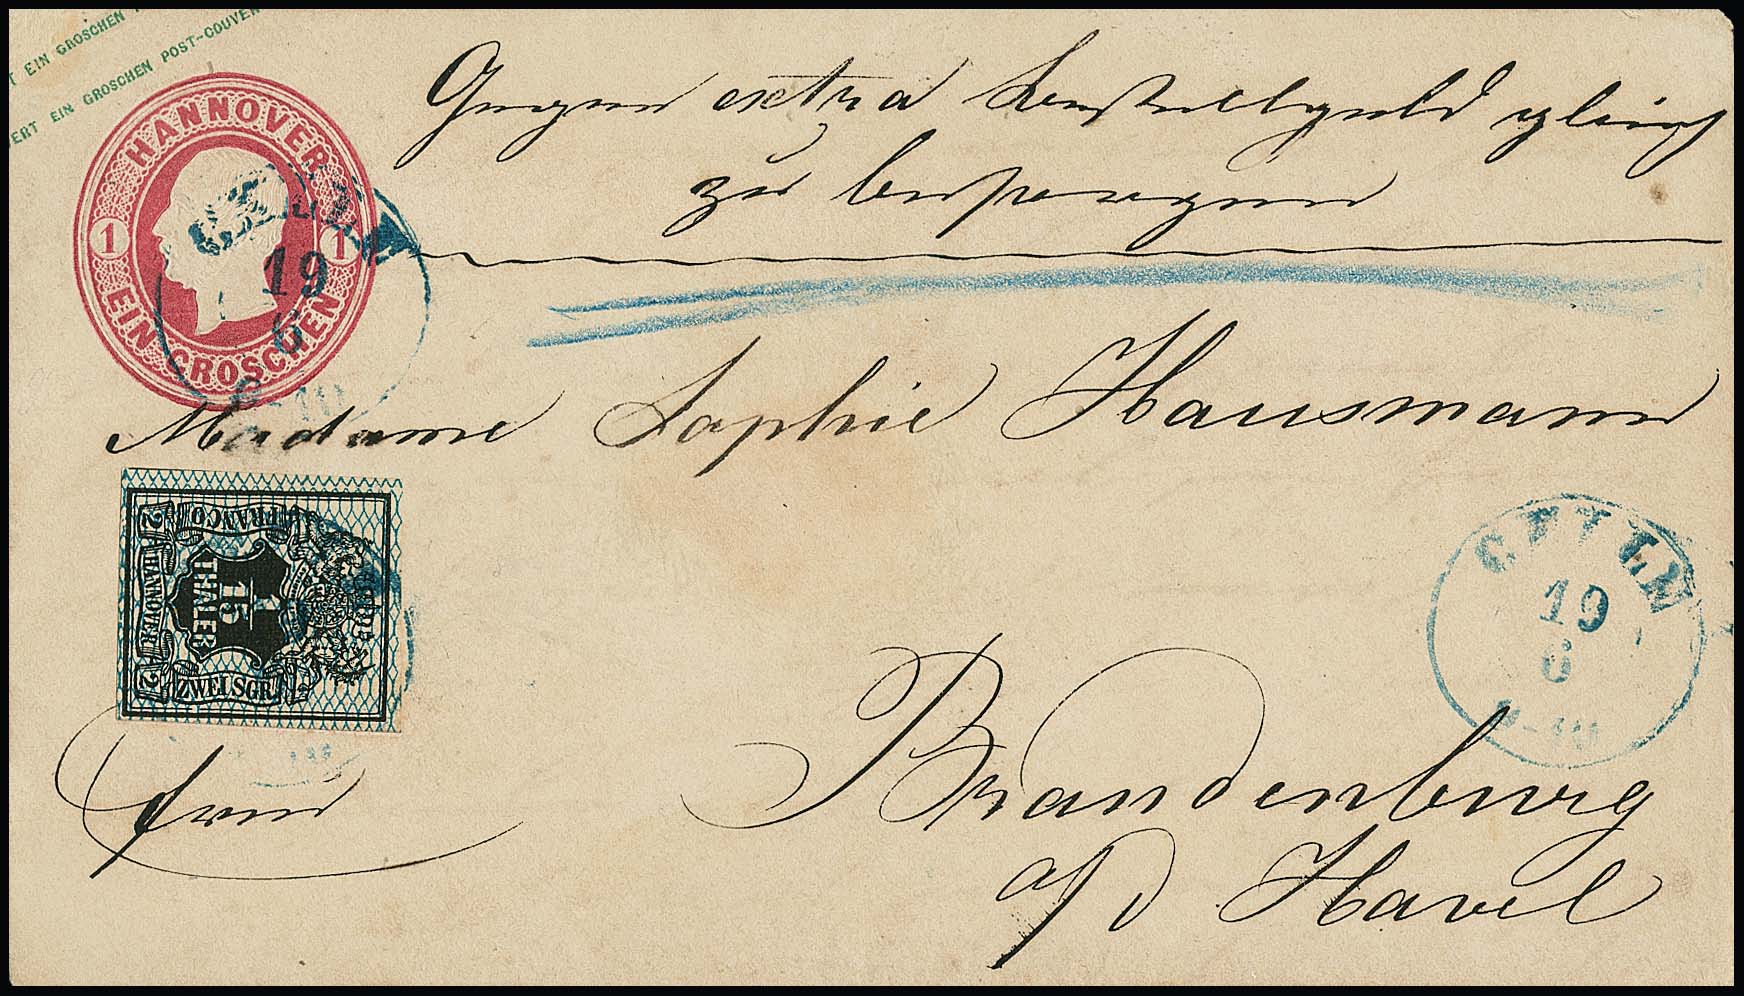 T EIN GROSCHEN
EIN GROSCHEN POST-COUVER
ERT EIN GROSCHEN
HANNOVER
1 1
EIN GROSCHEN
19
6
Gegen extra Bestellgeld gleich
zu besorgen
Madame Sophie Hausmann
FRANCO
2 HANNOVER 2
1/15
THALER
ZWEI SGR.
CELLE
19
6
8-10
frei
Brandenburg
a/d Havel